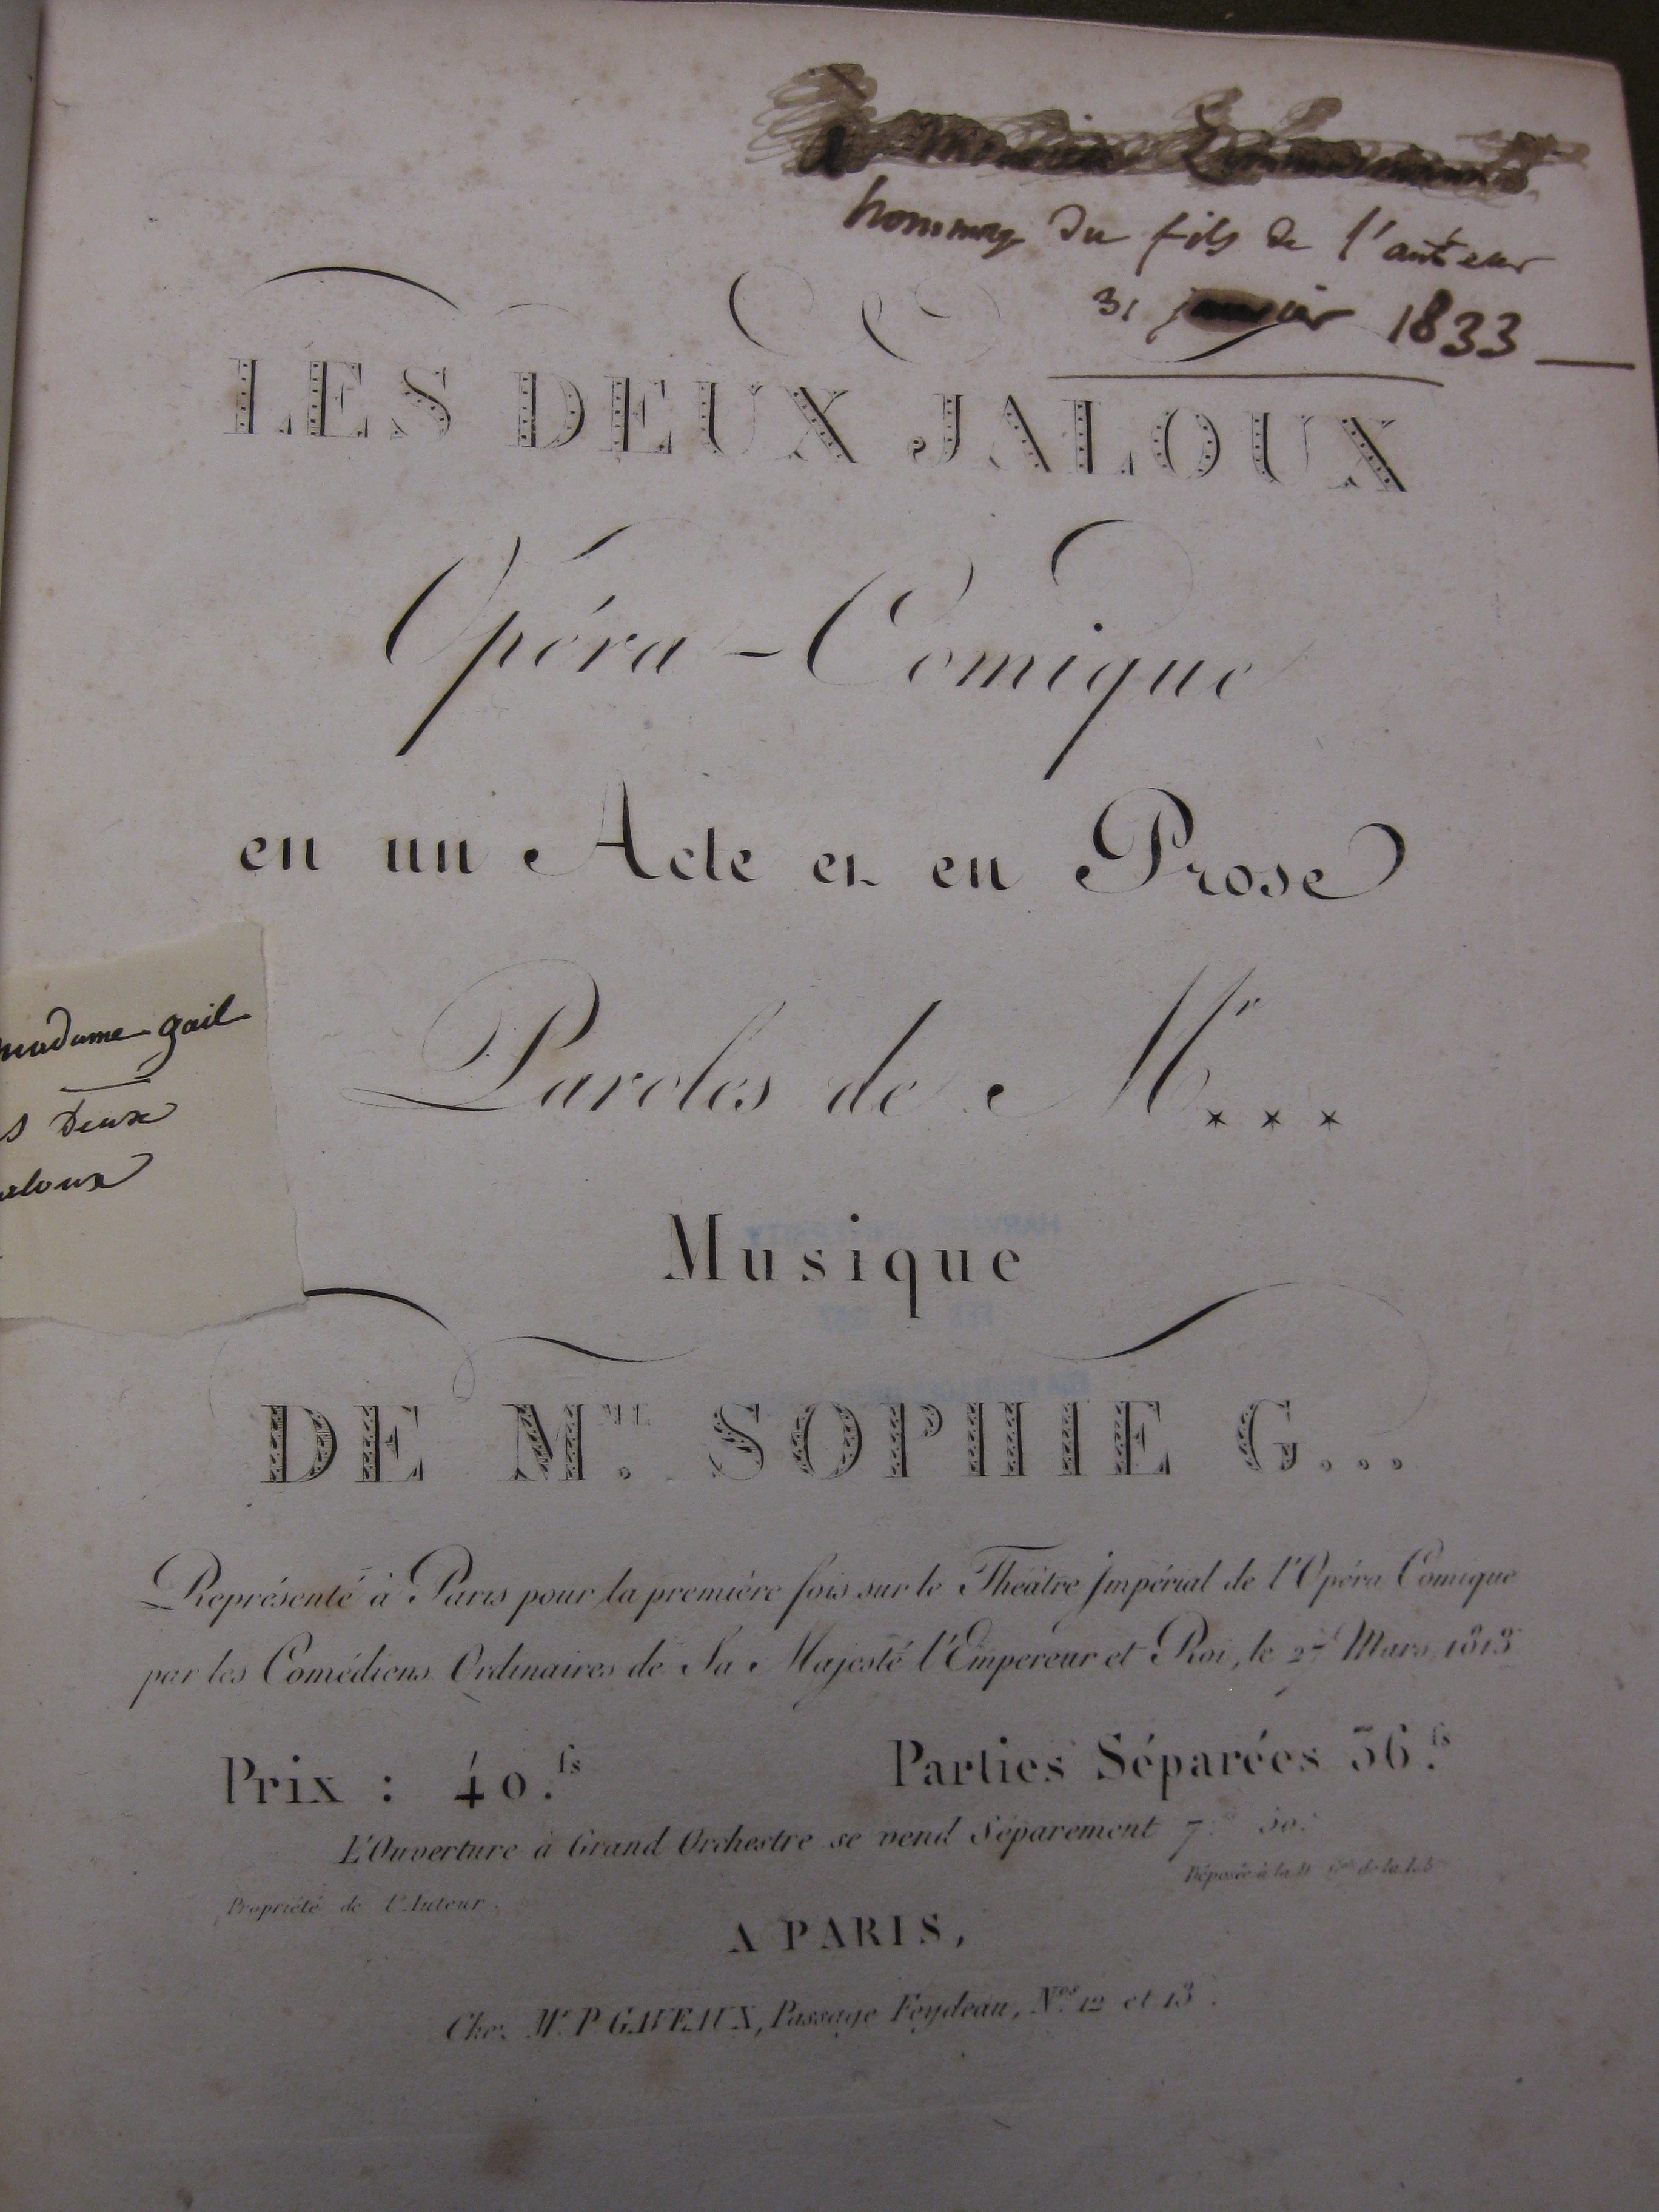 hommage du fils de l'auteur
31 janvier 1833
LES DEUX JALOUX
Opéra-Comique
en un Acte et en Prose
Paroles de Mr. * * *
madame gail
s Deux
aloux
Musique
DE Me. SOPHIE G...
Représenté à Paris pour la première fois sur le Théâtre Impérial de l'Opéra Comique
par les Comédiens Ordinaires de Sa Majesté l'Empereur et Roi, le 27 Mars 1813
Prix : 40.fs
Parties Séparées 36.fs
L'Ouverture à Grand Orchestre se vend Séparement 7
Déposée à la de la
Propriété de l'Auteur.
A PARIS,
Chez Mr. P. GAVEAUX, Passage Feydeau, Nos. 12 et 13.